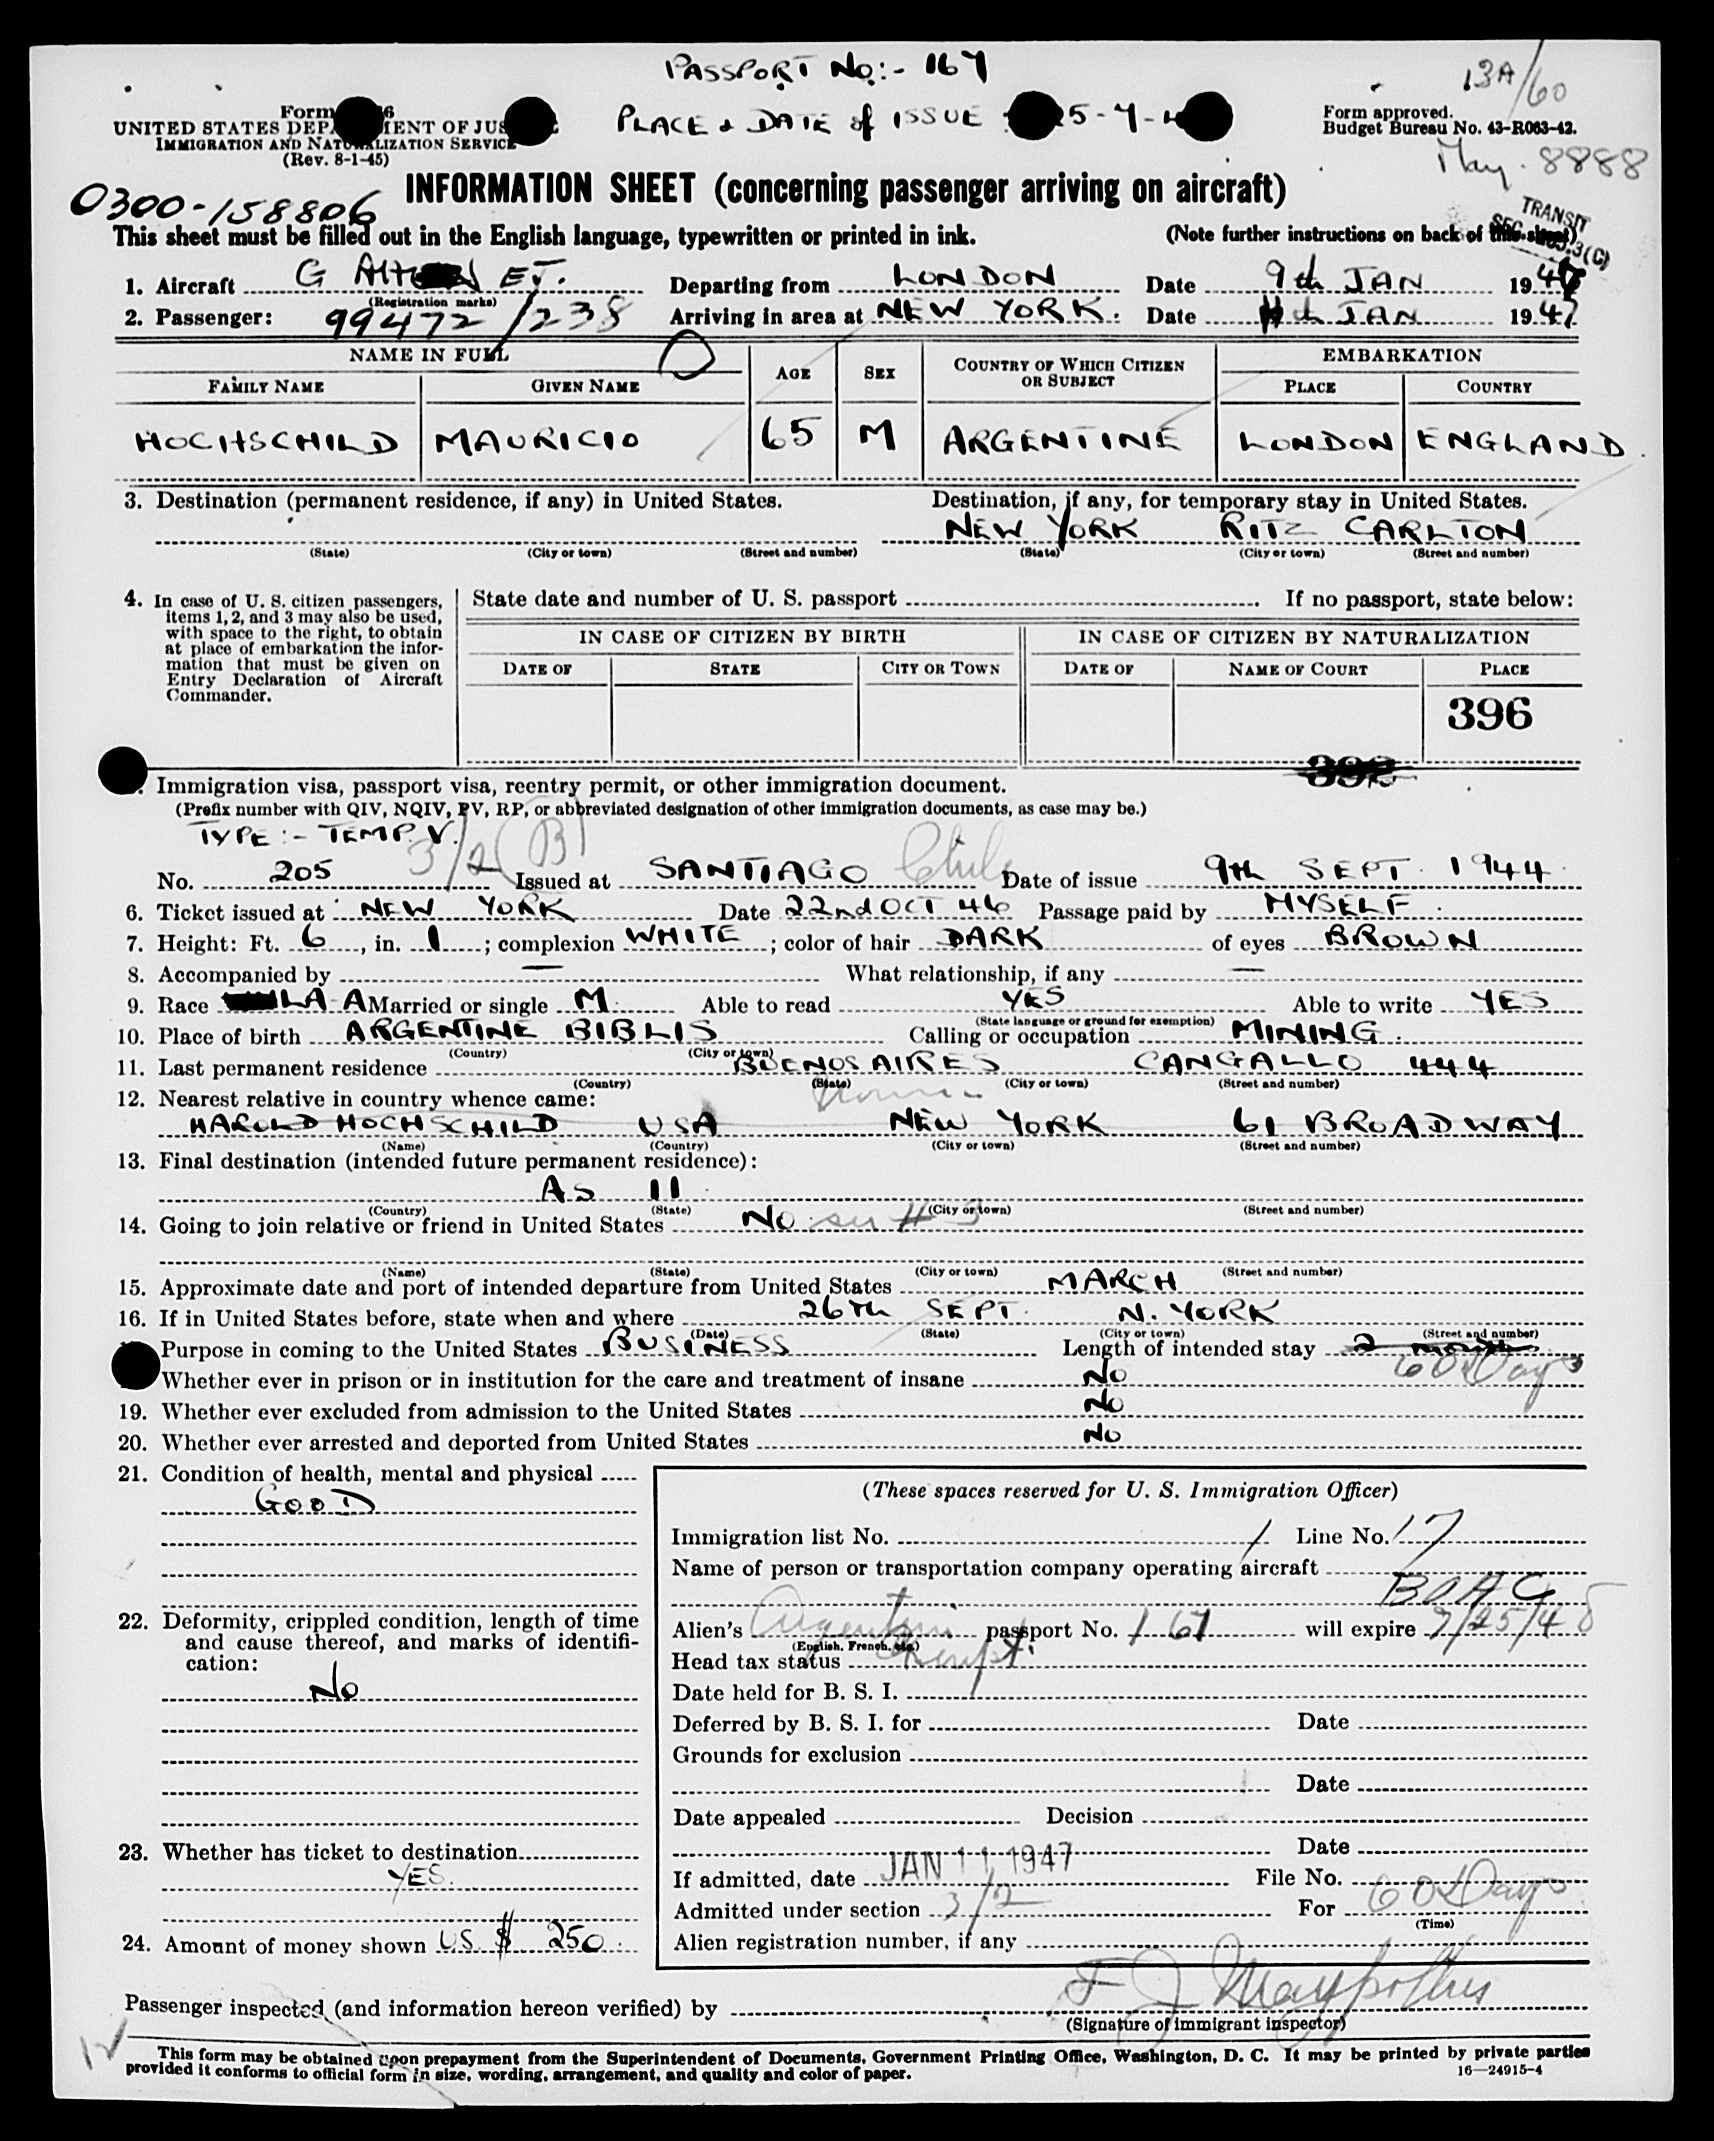 PASSPORT No:- 167
13A/60
Form 6
UNITED STATES DEP IENT OF JUS
IMMIGRATION AND NATURALIZATION SERVICE
(Rev. 8-1-45)
PLACE & DATE of ISSUE 25-7-4
Form approved.
Budget Bureau No. 43-R063-42.
May. 8888
0300-158806
INFORMATION SHEET (concerning passenger arriving on aircraft)
TRANSIT
SEC. 3(C)
This sheet must be filled out in the English language, typewritten or printed in ink. (Note further instructions on back of this sheet)
1. Aircraft G EJ. Departing from LONDON Date 9th JAN 1947
(Registration marks)
2. Passenger: 99472/238 Arriving in area at NEW YORK. Date 11th JAN 1947
NAME IN FULL AGE SEX COUNTRY OF WHICH CITIZEN OR SUBJECT EMBARKATION
FAMILY NAME GIVEN NAME PLACE COUNTRY
HOCHSCHILD MAURICIO 65 M ARGENTINE LONDON ENGLAND.
3. Destination (permanent residence, if any) in United States. Destination, if any, for temporary stay in United States.
NEW YORK RITZ CARLTON
(State) (City or town) (Street and number) (State) (City or town) (Street and number)
4. In case of U. S. citizen passengers,
items 1, 2, and 3 may also be used,
with space to the right, to obtain
at place of embarkation the infor-
mation that must be given on
Entry Declaration of Aircraft
Commander.
State date and number of U. S. passport If no passport, state below:
IN CASE OF CITIZEN BY BIRTH IN CASE OF CITIZEN BY NATURALIZATION
DATE OF STATE CITY OR TOWN DATE OF NAME OF COURT PLACE
396
Immigration visa, passport visa, reentry permit, or other immigration document.
(Prefix number with QIV, NQIV, PV, RP, or abbreviated designation of other immigration documents, as case may be.)
TYPE:- TEMP. V. 3/2 (B)
No. 205 Issued at SANTIAGO Chile Date of issue 9th SEPT. 1944
6. Ticket issued at NEW YORK Date 22nd OCT 46 Passage paid by MYSELF.
7. Height: Ft. 6, in. 1; complexion WHITE; color of hair DARK of eyes BROWN
8. Accompanied by — What relationship, if any —
9. Race LA-A Married or single M. Able to read YES Able to write YES
(State language or ground for exemption)
10. Place of birth ARGENTINE BIBLIS Calling or occupation MINING.
(Country) (City or town)
11. Last permanent residence BUENOS AIRES CANGALLO 444
(Country) (State) (City or town) (Street and number)
12. Nearest relative in country whence came:
HAROLD HOCHSCHILD USA NEW YORK 61 BROADWAY
(Name) (Country) (City or town) (Street and number)
13. Final destination (intended future permanent residence):
AS 11
(Country) (State) (City or town) (Street and number)
14. Going to join relative or friend in United States No. see #3
(Name) (State) (City or town) (Street and number)
15. Approximate date and port of intended departure from United States MARCH
16. If in United States before, state when and where 26TH SEPT. N. YORK
(Date) (State) (City or town) (Street and number)
Purpose in coming to the United States BUSINESS Length of intended stay 2 months
60 Days
Whether ever in prison or in institution for the care and treatment of insane No
19. Whether ever excluded from admission to the United States No
20. Whether ever arrested and deported from United States No
21. Condition of health, mental and physical
GOOD
22. Deformity, crippled condition, length of time
and cause thereof, and marks of identifi-
cation:
No
23. Whether has ticket to destination
YES.
24. Amount of money shown US $ 250.
(These spaces reserved for U. S. Immigration Officer)
Immigration list No. 1 Line No. 17
Name of person or transportation company operating aircraft
BOAC
Alien's Argentine passport No. 167 will expire 7/25/48
(English, French, etc.)
Head tax status Exempt
Date held for B. S. I.
Deferred by B. S. I. for Date
Grounds for exclusion
Date
Date appealed Decision
Date
If admitted, date JAN 11 1947 File No.
Admitted under section 3/2 For 60 Days
(Time)
Alien registration number, if any
Passenger inspected (and information hereon verified) by
(Signature of immigrant inspector)
This form may be obtained upon prepayment from the Superintendent of Documents, Government Printing Office, Washington, D. C. It may be printed by private parties
provided it conforms to official form in size, wording, arrangement, and quality and color of paper. 16—24915-4